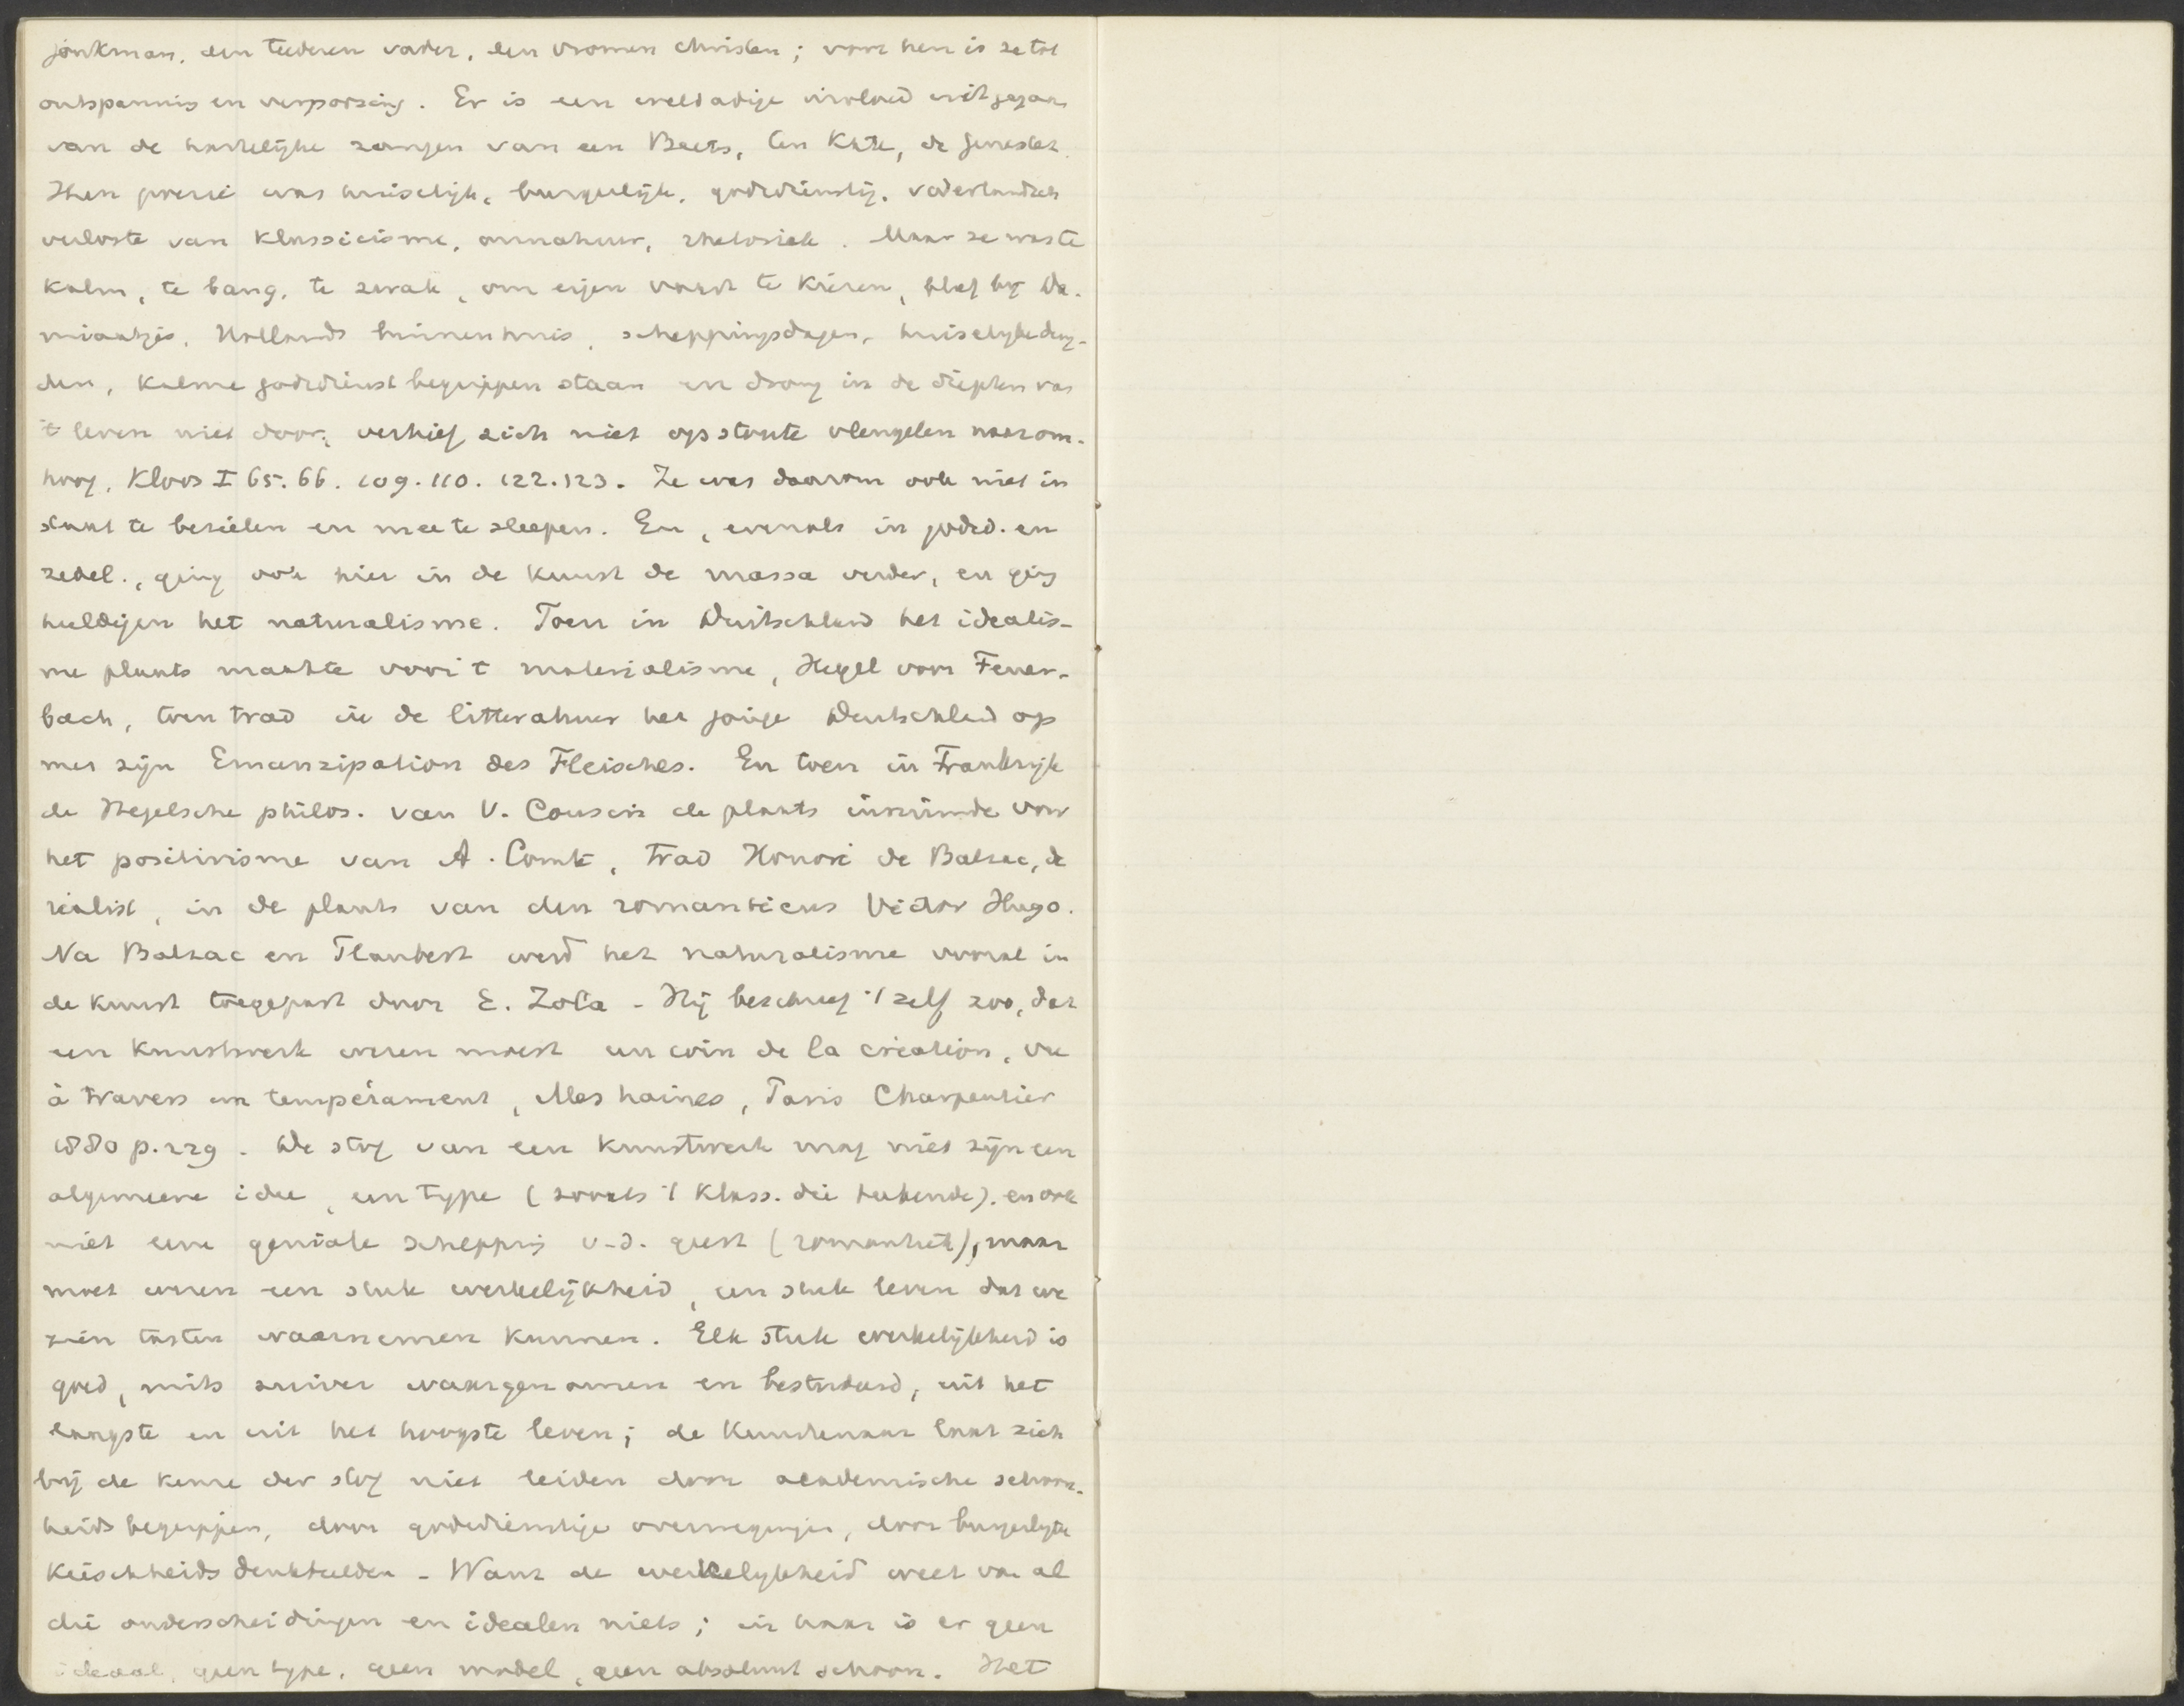 jonkman, den teederen vader, den vromen christen; voor hen is ze tot
ontspanning en verpoozing. Er is een weldadige invloed uitgegaan
van de hartelijke zangen van een Beets, ten Kate, de Genestet.
Hen poezie was huiselijk, burgerlijk, godsdienstig, vaderlandsch
verloste van klassicisme, onnatuur, rhetoriek. Maar ze was te
kalm, te bang, te zwak, om eigen vorm te kiezen, bleef bij Da-
miaatjes, Hollands binnenhuis, scheppingsdagen, huiselyke deug-
den, kalme godsdienst begrippen staan en drong in de diepten van
't leven niet door; verhief zich niet op stoute vleugelen naar om-
hoog, Kloos I 65. 66. 109. 110. 122. 123. Ze was daarom ook niet in
staat te bezielen en mee te sleepen. En, evenals in godsd. en
zedel., ging ook hier in de kunst de massa verder, en ging
huldigen het naturalisme. Toen in Duitschland het idealis-
me plaats maakte voor 't materialisme, Hegel voor Feuer-
bach, toen trad in de litteratuur het jonge Deutschland op
met zijn Emanzipation des Fleisches. En toen in Frankrijk
de Hegelsche philos. van V. Cousin de plaats inruimde voor
het positivisme van A. Comte, trad Honoré de Balzac, de
realist, in de plaats van den romanticus Victor Hugo.
Na Balzac en Flaubert werd het naturalisme vooral in
de kunst toegepast door E. Zola - Hij beschreef 't zelf zoo, dat
een kunstwerk wezen moest un coin de la création, vu
à travers un tempérament, Mes haines, Paris Charpentier
1880 p. 229. De stof van een kunstwerk mag niet zijn een
algemeene idee, een type (zooals 't klass. die teekende), en ook
niet eene geniale schepping v. d. geest (romantiek), maar
moet wezen een stuk werkelijkheid, een stuk leven dat we
zien tasten waarnemen kunnen. Elk stuk werkelijkheid is
goed, mits zuiver waargenomen en bestudeerd, uit het
laagste en uit het hoogste leven; de kunstenaar laat zich
bij de keuze der stof niet leiden door academische schoon-
heids begrippen, door godsdienstige overwegingen, door burgerlyke
kuischheids denkbeelden - Want de werkelykheid weet van al
die onderscheidingen en idealen niets; in haar is er geen
ideaal, geen type, geen model, geen absoluut schoon. Het